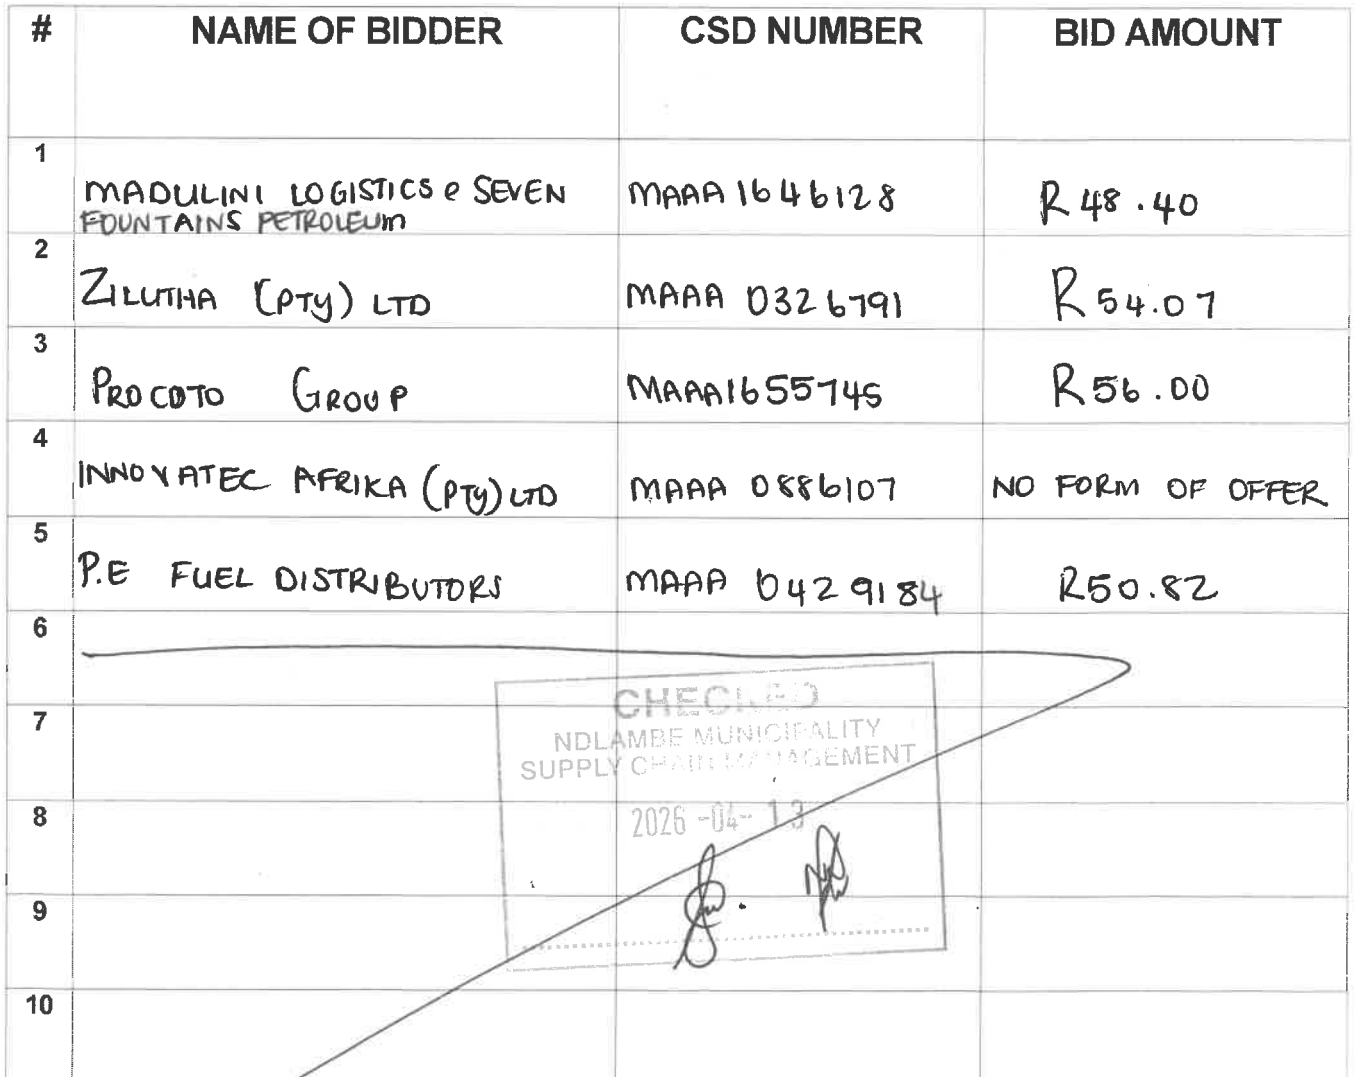 # NAME OF BIDDER CSD NUMBER BID AMOUNT
1
MADULINI LOGISTICS e SEVEN FOUNTAINS PETROLEUM MAAA 1646128 R 48.40
2
ZILUTHA (PTY) LTD MAAA 0326791 R 54.07
3
PROCOTO GROUP MAAA1655745 R56.00
4
INNOVATEC AFRIKA (PTY) LTD MAAA 0886107 NO FORM OF OFFER
5
P.E FUEL DISTRIBUTORS MAAA 0429184 R50.82
6
7
8
9
10
CHECKED
NDLAMBE MUNICIPALITY
SUPPLY CHAIN MANAGEMENT
2026 -04- 13